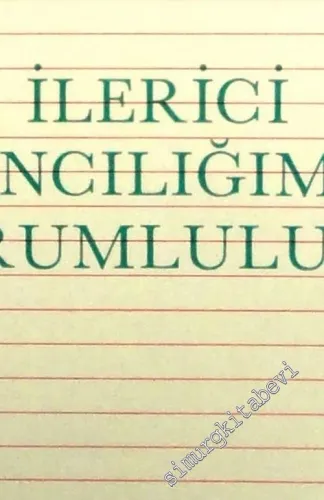 İLERİCİ
NCILIĞIM
RUMLULU
simurgkitabevi